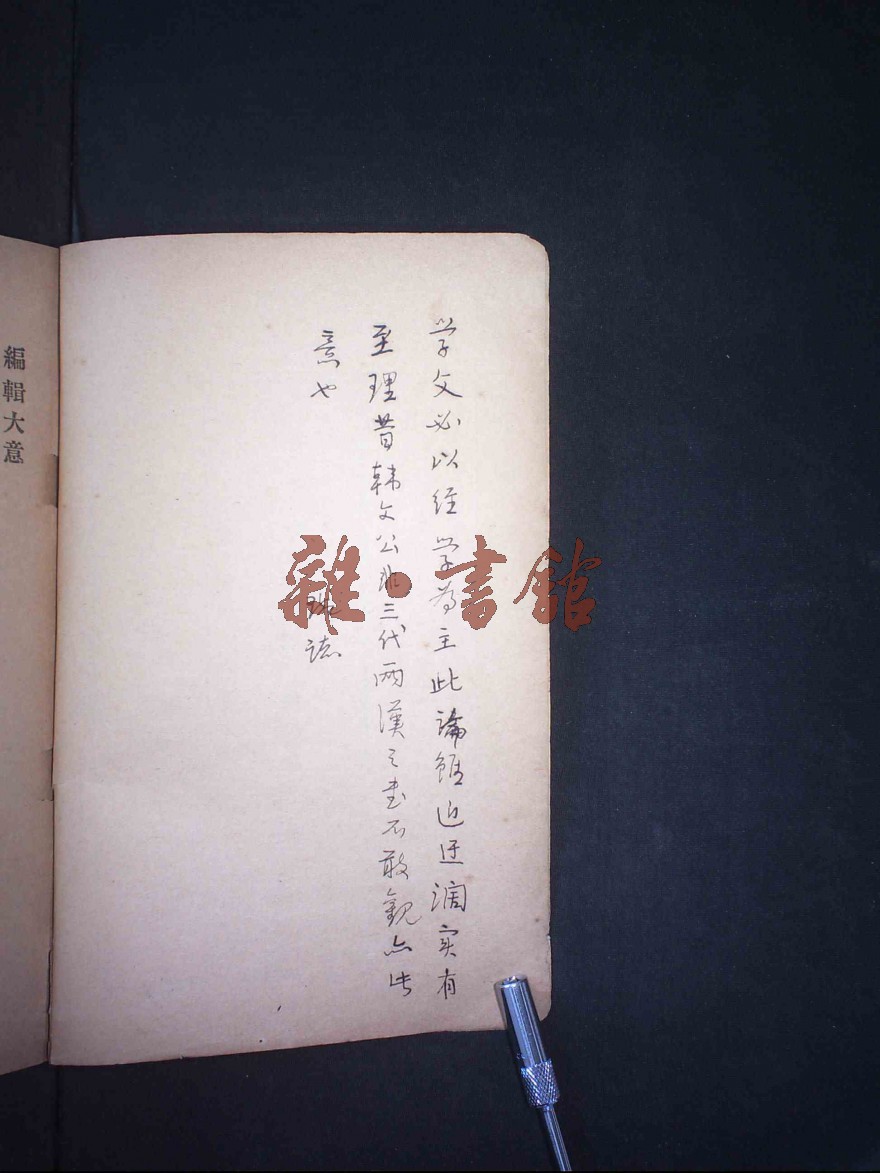 学文必以经学为主此論雖近迂濶实有
至理昔韩文公非三代两漢之书不敢觀亦此
意也
誌
編輯大意
雜·書館